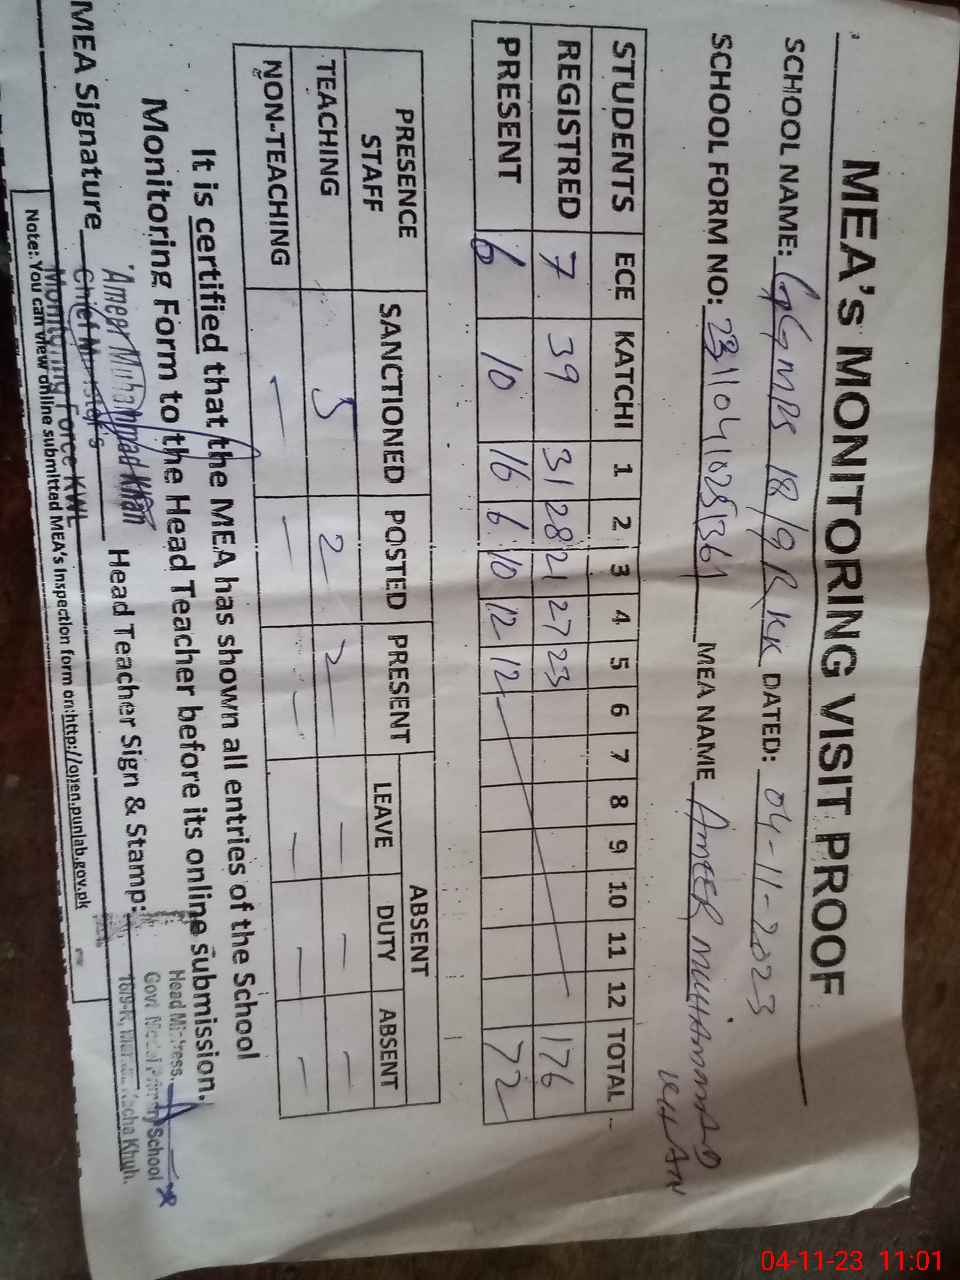 MEA's MONITORING VISIT PROOF
SCHOOL NAME: GGMPS 18/9R KK DATED: 04-11-2023
SCHOOL FORM NO: MEA NAME AMEER MUHAMMAD KHAN
STUDENTS ECE KATCHI 1 2 3 4 5 6 7 8 9 10 11 12 TOTAL
REGISTRED 7 39 31 28 21 27 23 176
PRESENT 6 10 16 6 10 12 12 72
PRESENCE STAFF SANCTIONED POSTED PRESENT ABSENT
LEAVE DUTY ABSENT
TEACHING 5 2 2 — — —
NON-TEACHING — — — — — —
It is certified that the MEA has shown all entries of the School
Monitoring Form to the Head Teacher before its online submission.
MEA Signature Ameer Muhammad Khan Head Teacher Sign & Stamp:
Chief Minister's
Monitoring Force KWL
Head Mistress.
Govt. Model Primary School
18/9-R, Kacha Khuh.
Note: You can view online submitted MEA's Inspection form on:http://open.punjab.gov.pk
04-11-23 11:01